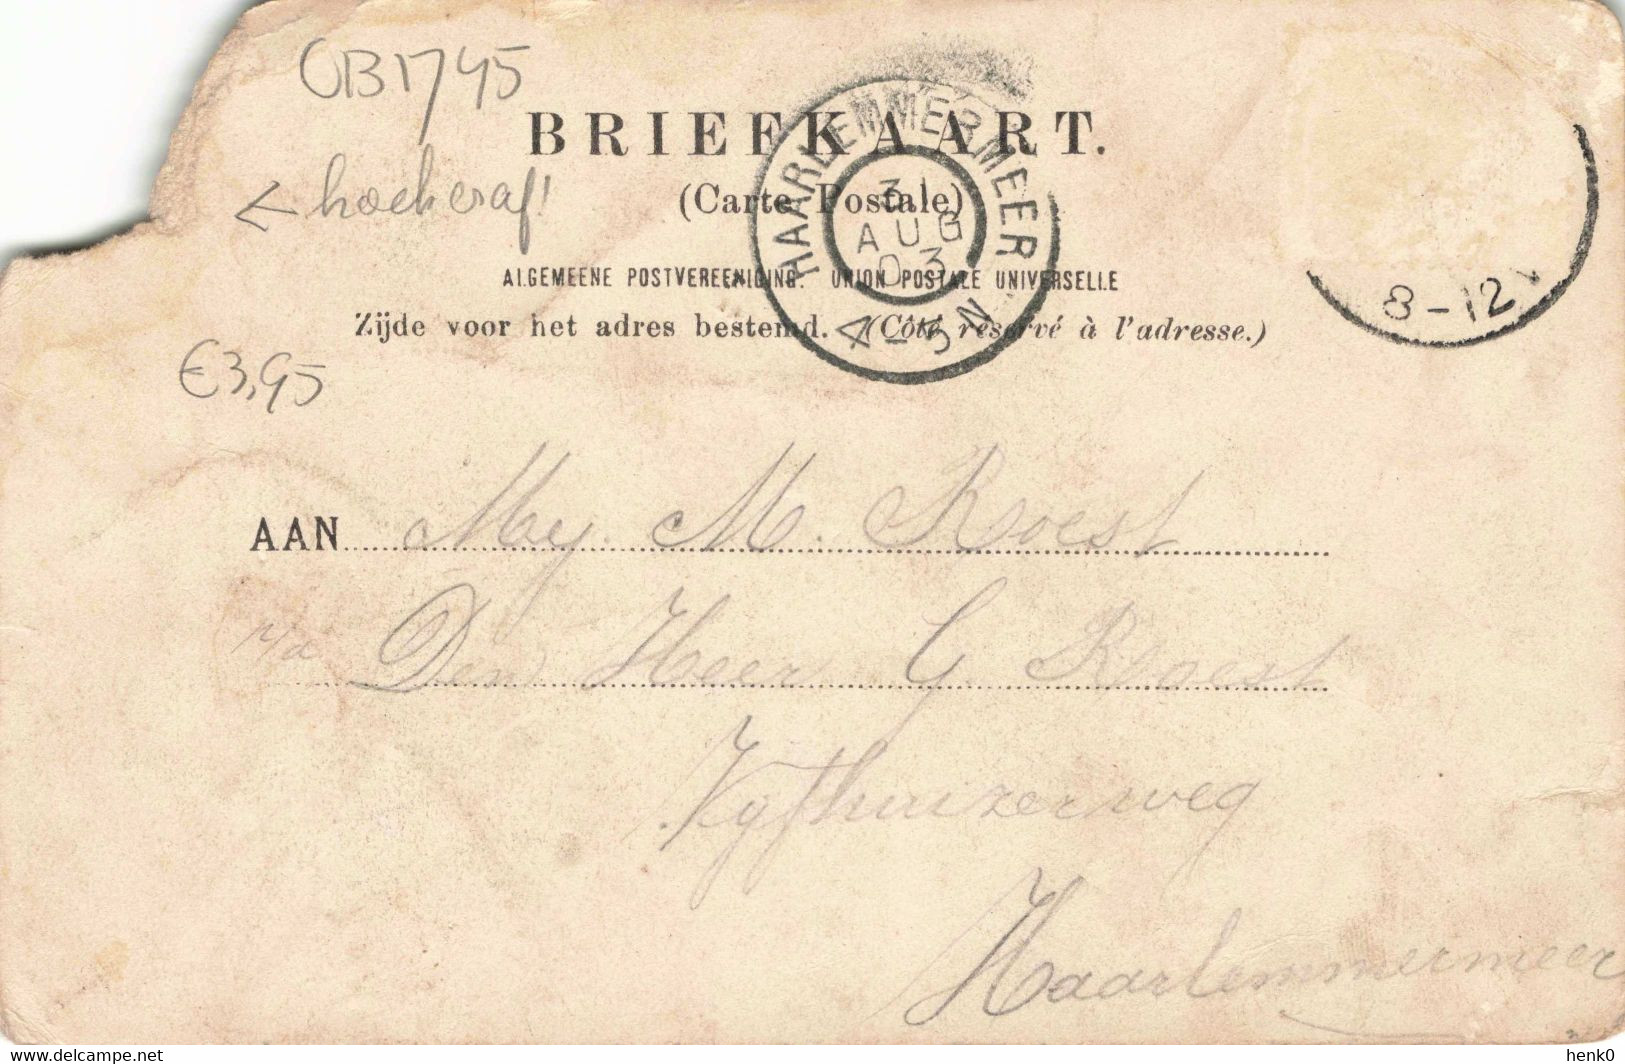 OB1745
BRIEFKAART.
← hoek eraf!
(Carte Postale)
HAARLEMMERMEER
31
AUG
03
4-5N
ALGEMEENE POSTVEREENIGING. UNION POSTALE UNIVERSELLE
8-12V
Zijde voor het adres bestemd. (Côté réservé à l'adresse.)
€3,95
AAN Mej. M. Roest
p/a Den Heer G. Roest
Vijfhuizerweg
Haarlemmermeer
https://www.delcampe.net
henk0